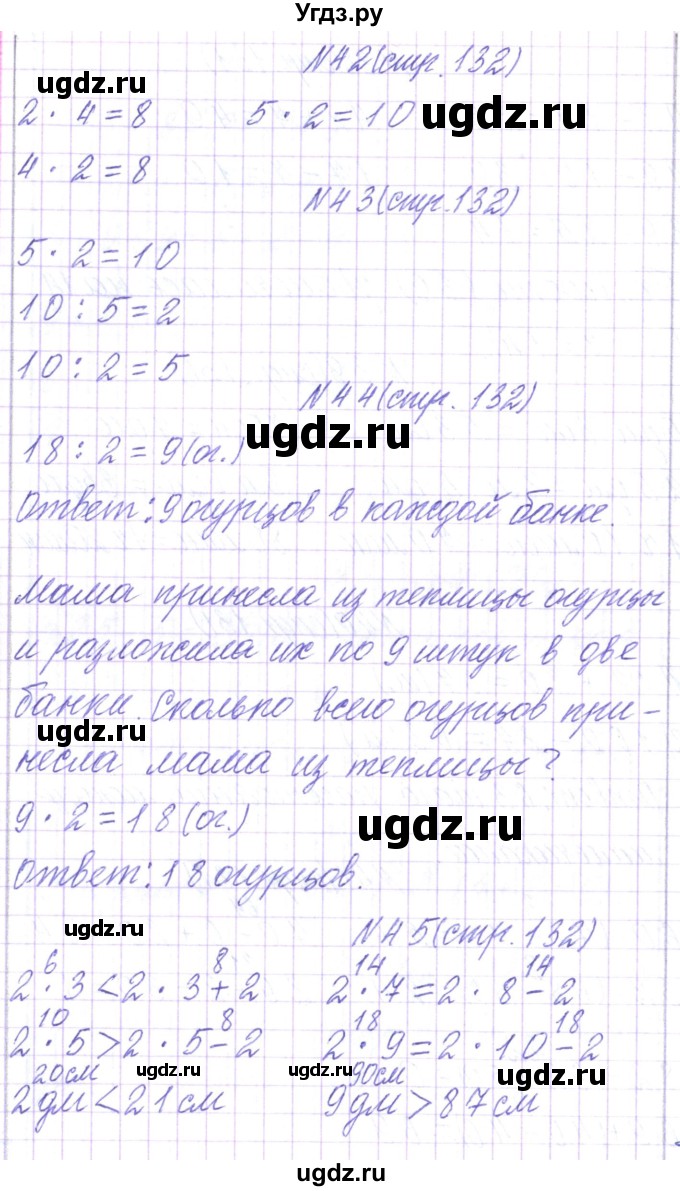 Угдз.ру
№42(стр.132)
ugdz.ru
2 · 4 = 8 5 · 2 = 10 ugdz.ru
4 · 2 = 8
№43(стр.132)
5 · 2 = 10
10 : 5 = 2
10 : 2 = 5
№44(стр.132)
ugdz.ru
18 : 2 = 9(ог.)
Ответ: 9 огурцов в каждой банке.
Мама принесла из теплицы огурцы
и разложила их по 9 штук в две
банки. Сколько всего огурцов при-
ugdz.ru
несла мама из теплицы?
9 · 2 = 18(ог.) ugdz.ru
Ответ: 18 огурцов.
ugdz.ru №45(стр.132)
6 8 14 14
2 · 3 < 2 · 3 + 2 2 · 7 = 2 · 8 - 2
10 8 18 18
2 · 5 > 2 · 5 - 2 2 · 9 = 2 · 10 - 2
20см ugdz.ru ugdz.ru 90см ugdz.ru
2дм < 21см 9дм > 87см
ugdz.ru